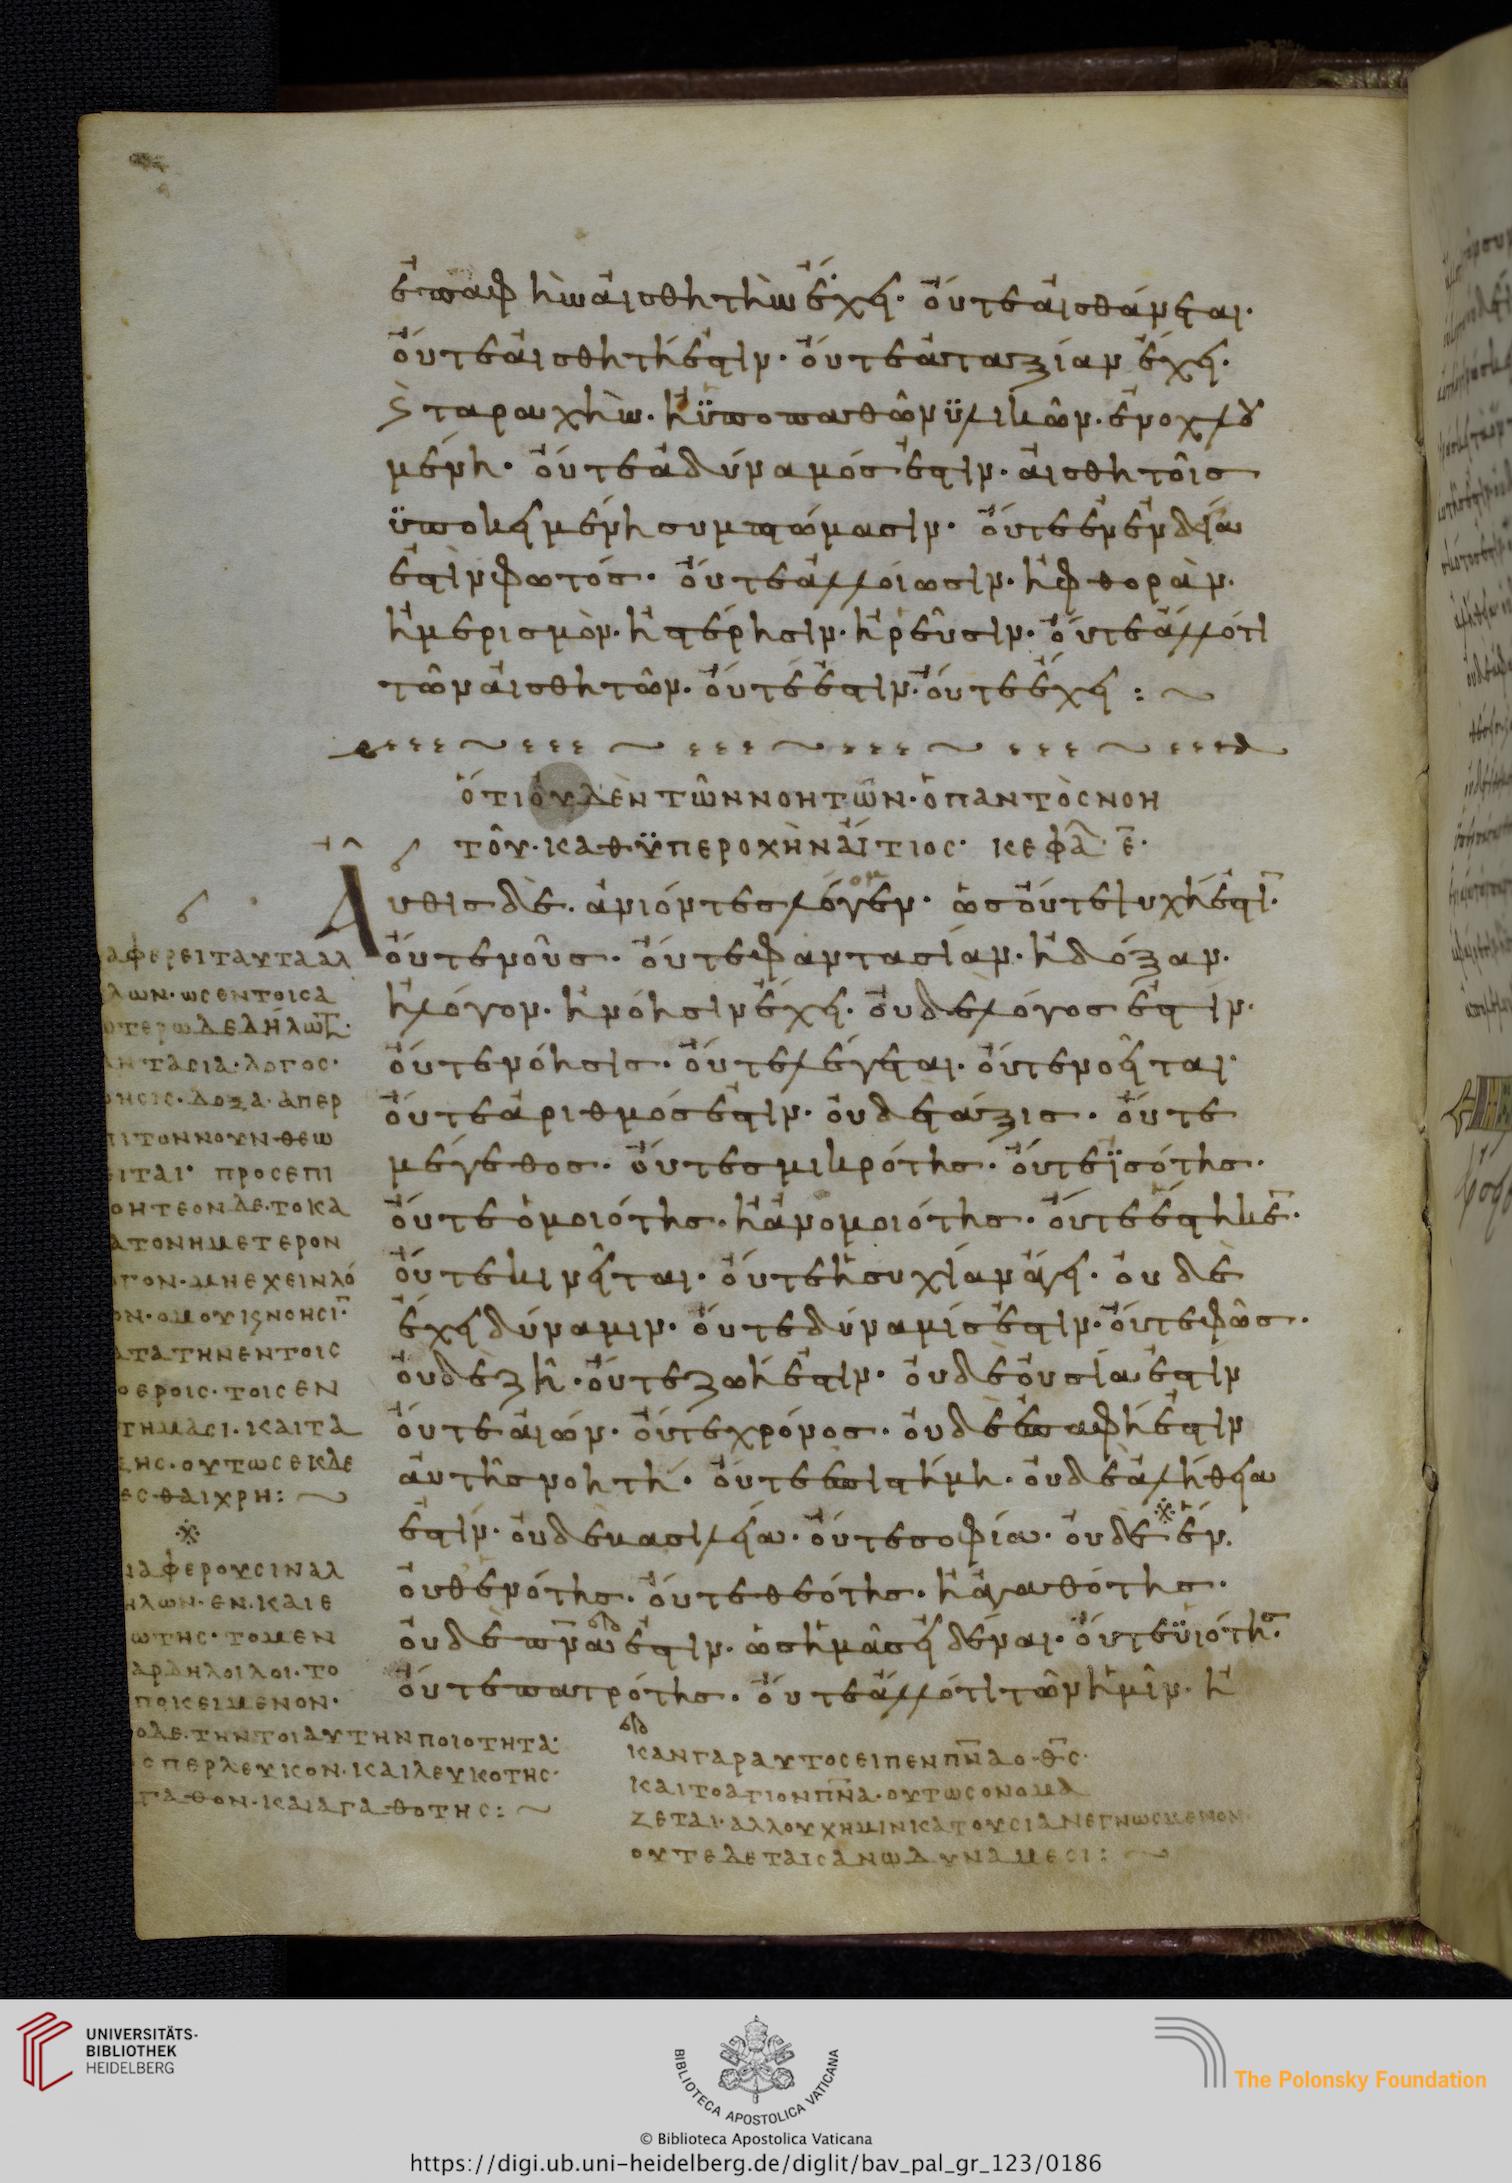 ἐπαφὴν αἰσθητὴν ἔχει· οὔτε αἰσθάνεται·
οὔτε αἰσθητή ἐστιν· οὔτε ἀταξίαν ἔχει·
ϗ ταραχὴν· ἢ ϋπο παθῶν ϋλικῶν· ἐνοχλου
μένη· οὔτε ἀδύναμός ἐστιν· αἰσθητοῖς
ϋποκειμένη συμπτώμασιν· οὔτε ἐν ἐνδεία
ἐστὶν φωτός· οὔτε ἀλλοίωσιν· ἢ φθορὰν·
ἢ μερισμὸν· ἢ στέρησιν· ἢ ῥεῦσιν· οὔτε ἄλλό τι
τῶν αἰσθητῶν· οὔτέ ἐστιν· οὔτε ἔχει :~
ὅτι οὐδὲν τῶν νοητῶν· ὁ παντὸς νοη
τοῦ· καθ ϋπεροχὴν αἴτιος· κεφα ε·
Αὖθις δὲ· ἀνιόντες λέγομεν· ὡς οὔτε ψυχή ἐστι·
οὔτε νοῦς· οὔτε φαντασίαν· ἢ δόξαν·
ἢ λόγον· ἢ νόησιν ἔχει· οὐδὲ λόγος ἐστίν·
οὔτε νόησις· οὔτε λέγεται· οὔτε νοεῖται·
οὔτε ἀριθμός ἐστίν· οὐδε τάξις· οὔτε
μέγεθος· οὔτε σμικρότης· οὔτε ϊσότης·
οὔτε ὁμοιότης· ἢ ἀνομοιότης· οὔτε ἕστηκε·
οὔτε κινεῖται· οὔτε ἡσυχίαν ἄγει· οὐδὲ
ἔχει δύναμιν· οὔτε δύναμίς ἐστιν· οὔτε φῶς·
οὐδὲ ζῆ· οὔτε ζωή ἐστιν· οὐδὲ οὐσία ἐστὶν
οὔτε αἰών· οὔτε χρόνος· οὐδὲ ἐπαφή ἐστιν
αὐτῆς νοητή· οὔτε ἐπιστήμη· οὐδὲ ἀλήθεια
ἐστίν· οὐδὲ βασιλεία· οὔτε σοφία· οὐδὲ ἕν·
οὐθ ἑνότης· οὔτε θεότης· ἢ ἀγαθότης·
οὐδὲ πνα ἐστιν· ὡς ἡμᾶς εἰδέναι· οὔτε ϋιότης·
οὔτε πατρότης· οὔτε ἄλλό τι τῶν ἡμῖν· ἢ
αφερει ταυτα αλ
λων· ως εν τοις α
τερω δεδήλωτ·
ντασια· λογος·
ησις· δοξα· απερ
ι τον νουν θεω
ειται· προσεπι
οητεον δε· το κα
ατον ημετερον
γον· μη εχειν λό
ον· ομου ϗ νοησι·
ατα την εν τοις
οεροις· τοις εν
τημασι· και τα
ξης· ουτως εκδε
εσθαι χρη :~
ιαφερουσιν αλ
ηλων· εν· και ε
ωτης· το μεν
αρ δηλοι λοι· το
ποκειμενον·
ο δε· την τοιαυτην ποιοτητα·
σπερ λευκον· και λευκοτης·
γαθον· και αγαθοτης :~
καν γαρ αυτος ειπεν πνα ο θς·
και το αγιον πνα· ουτως ονομα
ζεται· αλλ ουχ ημιν κατ ουσιαν εγνωσμενον
ουτε δε ταις ανω δυναμεσι :~
UNIVERSITÄTS-
BIBLIOTHEK
HEIDELBERG
BIBLIOTECA APOSTOLICA VATICANA
The Polonsky Foundation
© Biblioteca Apostolica Vaticana
https://digi.ub.uni-heidelberg.de/diglit/bav_pal_gr_123/0186